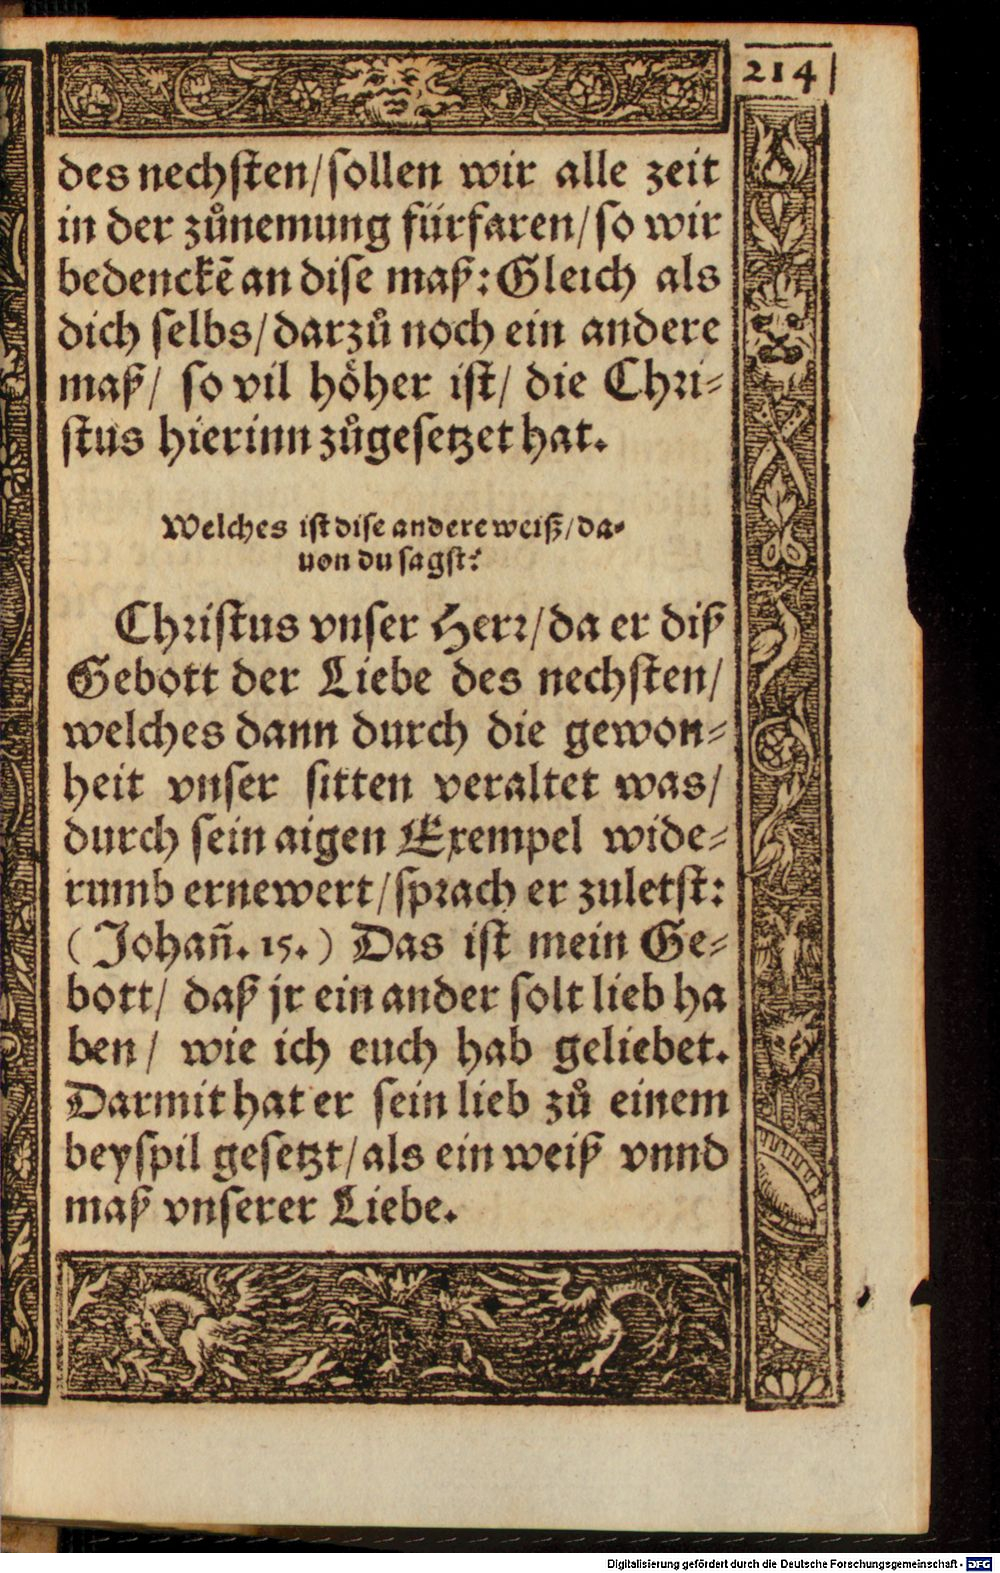 214
des nechsten/sollen wir alle zeit
in der zůnemung fürfaren/so wir
bedenckē an dise maß: Gleich als
dich selbs/darzů noch ein andere
maß/ so vil höher ist/ die Chri-
stus hierinn zůgesetzet hat.
Welches ist dise andere weiß/da-
uon du sagst?
Christus vnser Herr/da er diß
Gebott der Liebe des nechsten/
welches dann durch die gewon-
heit vnser sitten veraltet was/
durch sein aigen Exempel wide-
rumb ernewert/sprach er zuletst:
(Johañ. 15.) Das ist mein Ge-
bott/ daß jr ein ander solt lieb ha
ben/ wie ich euch hab geliebet.
Darmit hat er sein lieb zů einem
beyspil gesetzt/als ein weiß vnnd
maß vnserer Liebe.
Digitalisierung gefördert durch die Deutsche Forschungsgemeinschaft - DFG